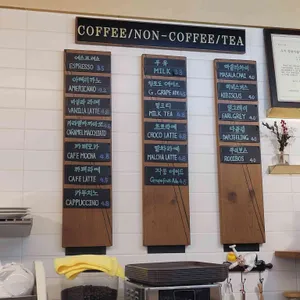 COFFEE/NON-COFFEE/TEA
에스프레소
ESPRESSO
아메리카노
AMERICANO
바닐라 라떼
VANILLA LATTE
카라멜마끼아또
CARAMEL MACCHIATO
카페모카
CAFE MOCHA
카페라떼
CAFE LATTE
카푸치노
CAPPUCCINO
우유
MILK
G.GRAPE ADE
밀크티
MILK TEA
초코라떼
CHOCO LATTE
말차라떼
MALCHA LATTE
자몽 에이드
Grapefruit Ade
마살라차이
MASALA CHAI
히비스커스
HIBISCUS
얼그레이
EARL GREY
다즐링
DARJEELING
루이보스
ROOIBOS